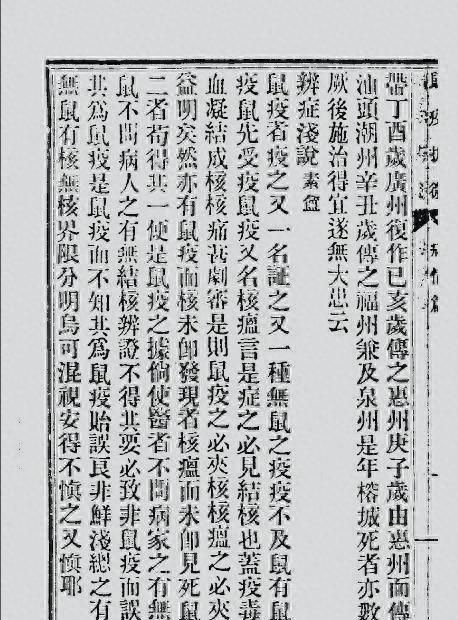 帶丁酉歲廣州復作已亥歲傳之惠州庚子歲由惠州而傳
汕頭潮州辛丑歲傳之福州兼及泉州是年榕城死者亦數
厥後施治得宜遂無大患云
辨症淺說 素盦
鼠疫者疫之又一名証之又一種無鼠之疫疫不及鼠有鼠
疫鼠先受疫鼠疫又名核瘟言是症之必見結核也蓋疫毒
血凝結成核核痛甚劇審是則鼠疫之必夾核核瘟之必夾
益明矣然亦有鼠疫而核未卽發現者核瘟而未卽見死鼠
二者苟得其一便是鼠疫之據倘使醫者不問病家之有無
鼠不問病人之有無結核辨證不得其要必致非鼠疫而誤
其為鼠疫是鼠疫而不知其為鼠疫貽誤良非鮮淺總之有
無鼠有核無核界限分明烏可混視安得不慎之又慎耶